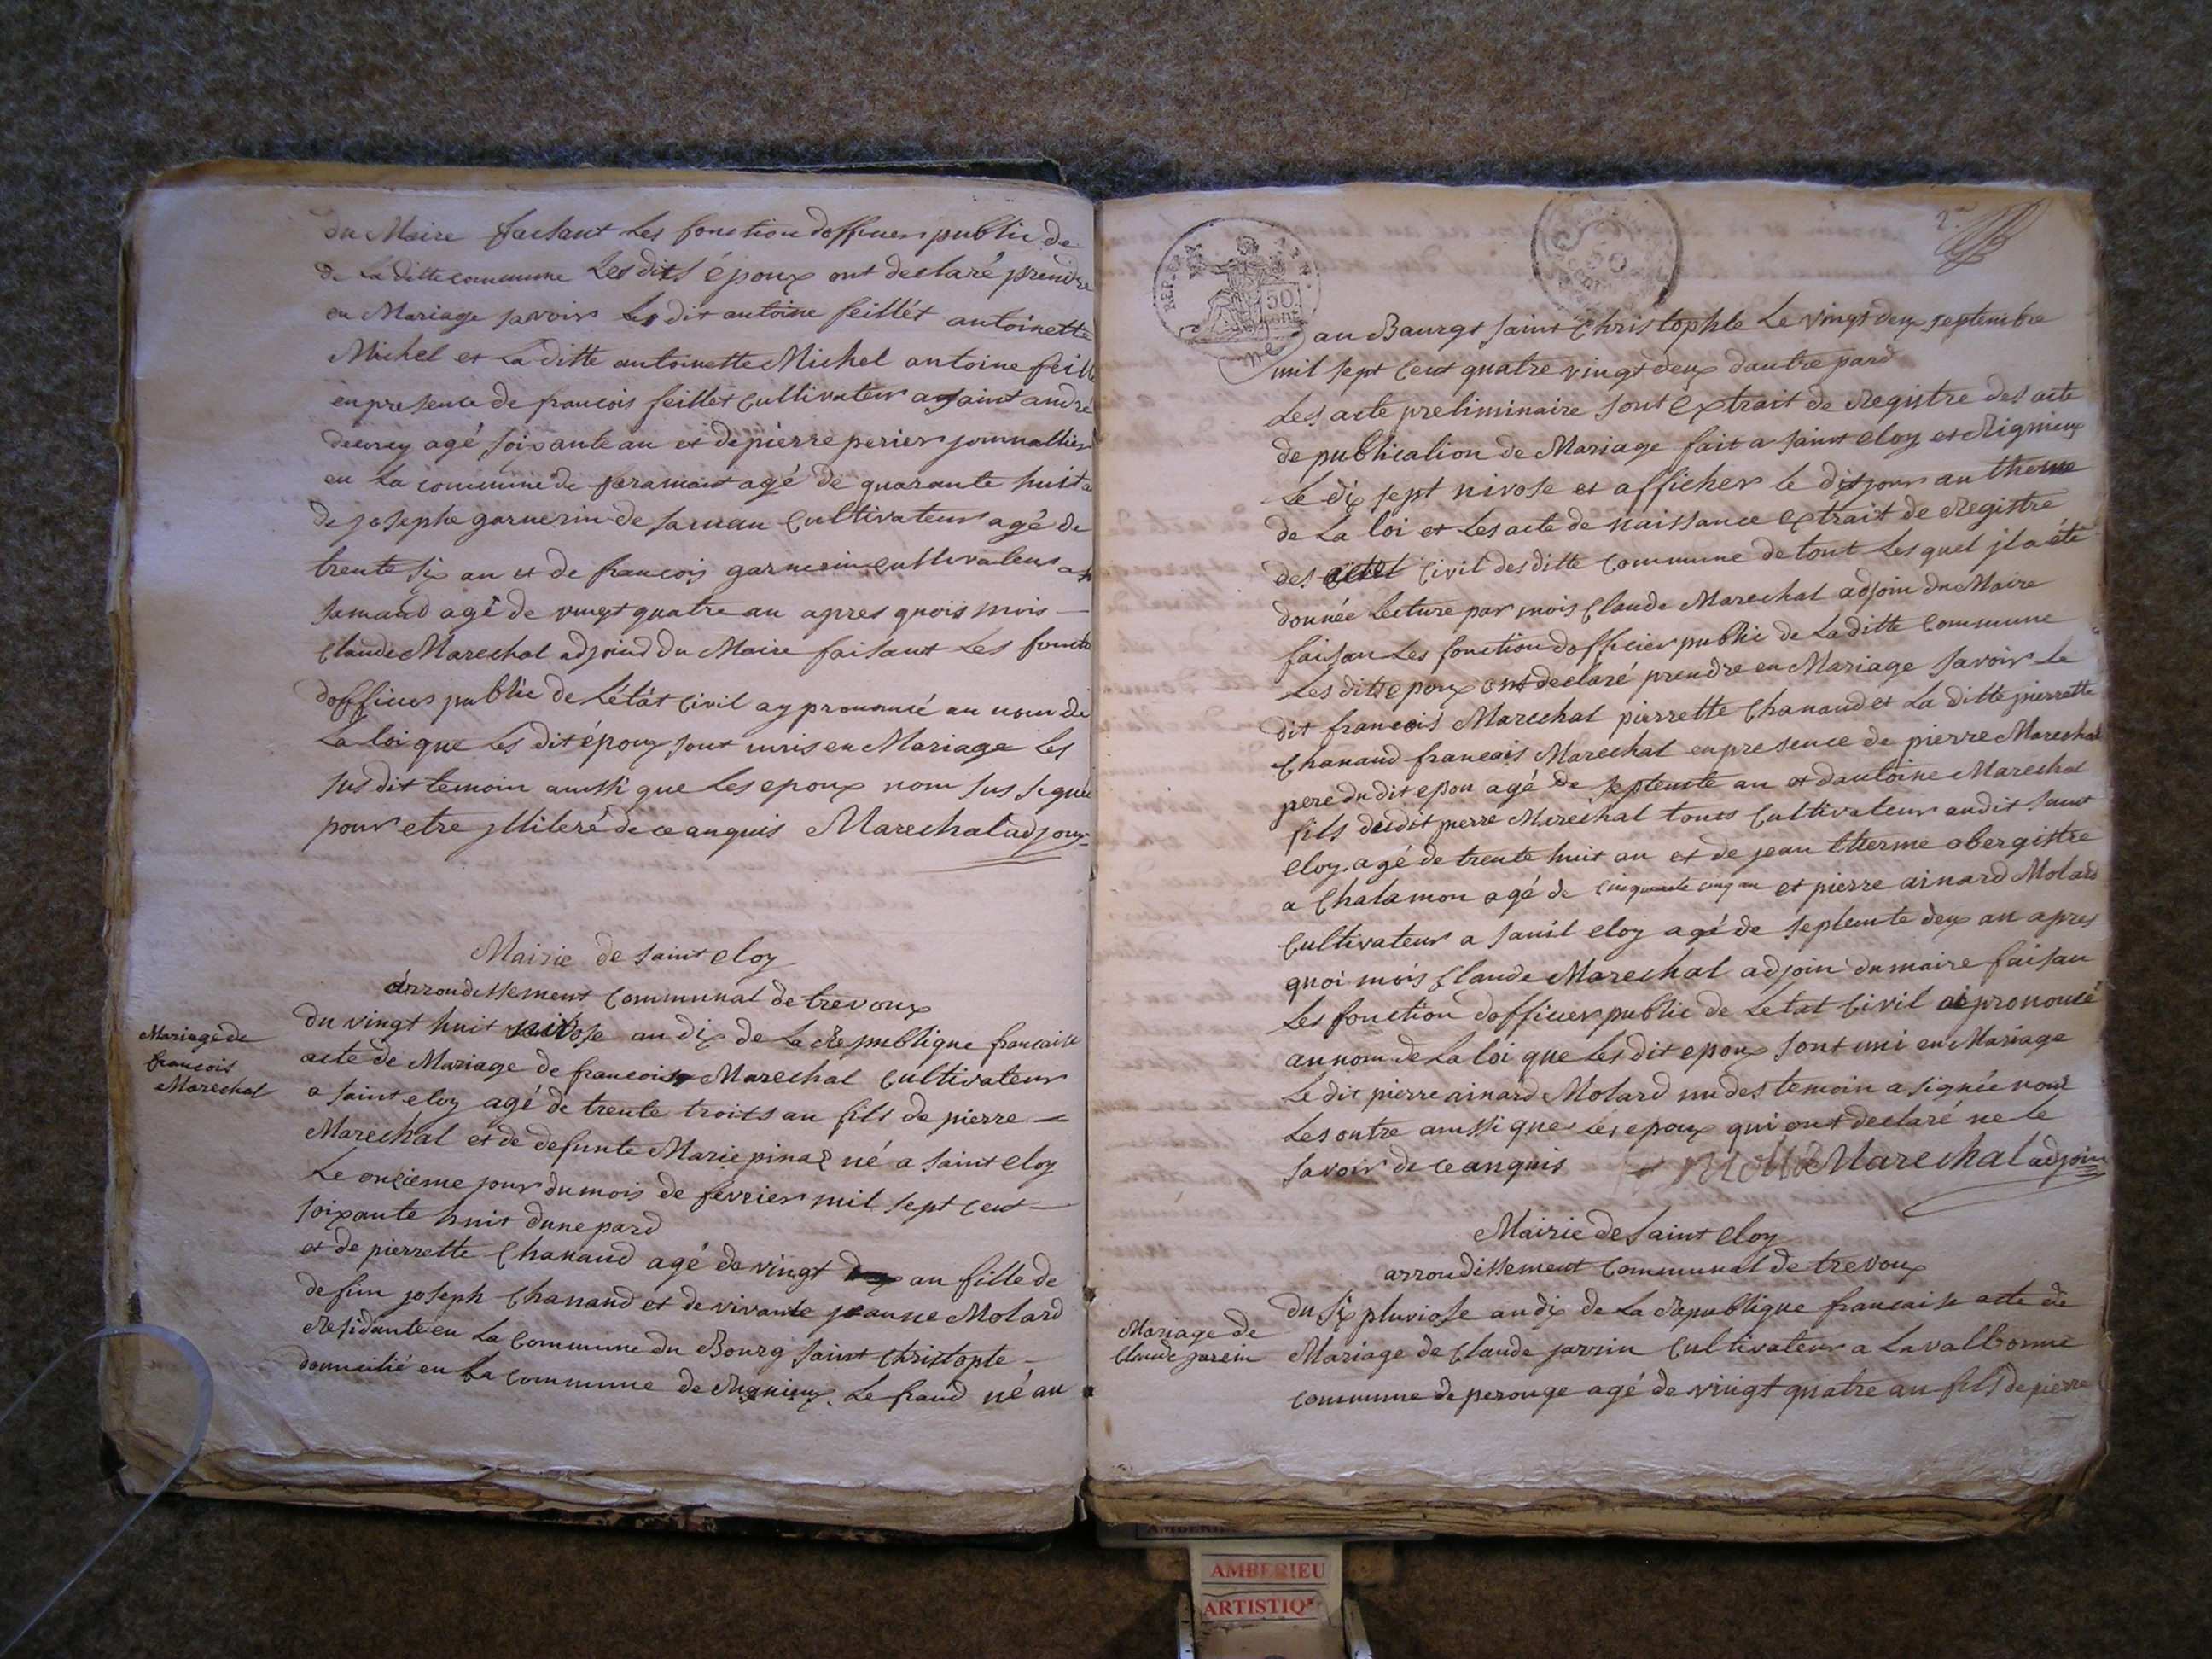 du Maire faisant Les fonction dofficier public de
de La ditte commune Les dits époux ont declaré prendre
en Mariage savoir Le dit antoine feillét antoinette
Michel et La ditte antoinette Michel antoine feill
en presence de francois feillet Cultivateur a saint andré
agé soixante an et de pierre perier journallier
en La commune de faramant agé de quarante huit a
de joseph garnerin de Cultivateur agé de
trente six an et de francois garnerin cultivateur a
agé de vingt quatre an apres quois mois
Claude Marechal adjoind du Maire faisant Les foncti
dofficier public de Létat Civil ay prononcé au nom de
La loi que Les dit époux sont unis en Mariage Les
susdit temoin aussi que Les epoux nom sus signée
pour etre jlliteré de ce anquis Marechal adjoin
Mairie de saint eloy
arrondissement Communal de trevoux
Mariage de
francois
Marechal
du vingt huit nivose an dix de La Republique francaise
acte de Mariage de francois Marechal Cultivateur
a saint eloy agé de trente troits an fils de pierre
Marechal et de defunte Marie pinaz né a saint eloy
Le onzieme jour du mois de fevrier mil sept cent
soixante huit dune pard
et de pierrette Chanaud agé de vingt an fille de
defun joseph Chanaud et de vivante jeanne Molard
Residante en La Commune du Bourg saint Christople
domicilié en La Commune de Rignieux Le franc né au
2
REP. FRA
50
CENT
50
au Bourgt saint Christophle Le vingt deux septembre
mil sept Cent quatre vingt deux dautre pard
Les acte preliminaire sont extrait de Registre des acte
de publication de Mariage fait a saint eloy et Rignieux
Le dix sept nivose et afficher le dit jour au therme
de La loi et Les acte de naissance extrait de Registre
des actes Civil des ditte Commune de tout Les quel jl a été
donnée Lecture par mois Claude Marechal adjoin du Maire
faisan Les fonction dofficier public de La ditte Commune
Les ditt epoux ont declaré prendre en Mariage savoir Le
dit francois Marechal pierrette Chanaud et La ditte pierrette
Chanaud francois Marechal en presence de pierre Marechal
pere du dit epou agé de septente an et dantoine Marechal
fils dudit pierre Marechal touts Cultivateur audit saint
eloy agé de trente huit an et de jean therme obergistre
a Chalamon agé de cinquante cinq an et pierre ainard Molard
Cultivateur a saint eloy agé de septente deux an apres
quoi mois Claude Marechal adjoin du maire faisan
Les fonction dofficier public de Letat Civil ai prononcé
au nom de La loi que Les dit epoux sont uni en Mariage
Le dit pierre ainard Molard un des temoin a signée nom
Les outre aussi que Les epoux qui ont declaré ne le
savoir de ce anquis Marechal adjoin
Mairie de Saint eloy
arrondissement Communal de trevoux
Mariage de
Claude jarrin
du six pluviose an dix de La Republique francaise acte de
Mariage de Claude jarrin Cultivateur a Lavalbonne
Commune de perouge agé de vingt quatre an fils de pierre
AMBERIEU
ARTISTIQ